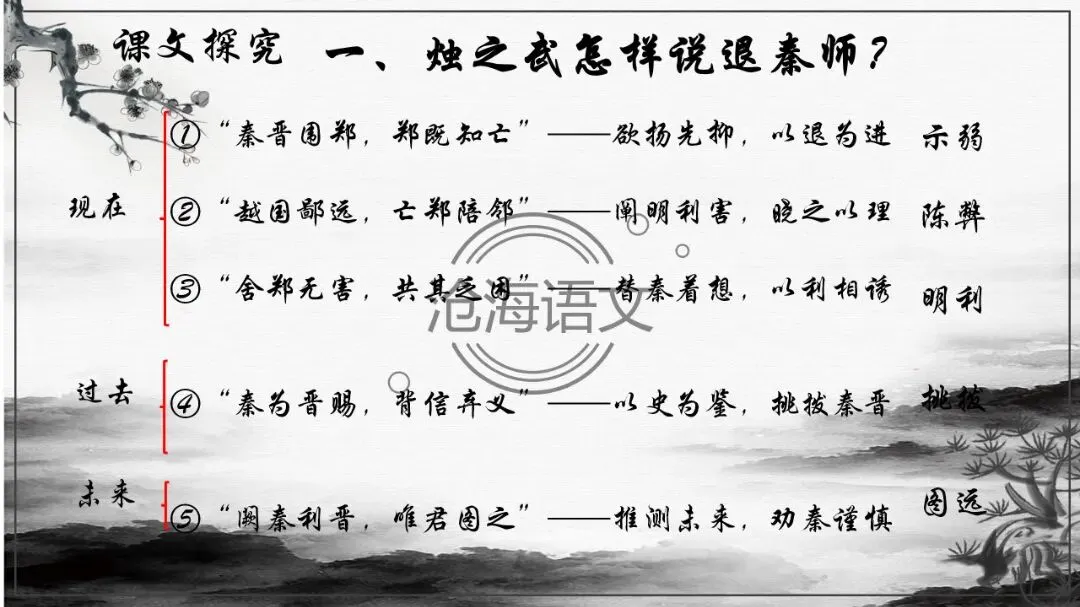 课文探究 一、烛之武怎样说退秦师？
①“秦晋围郑，郑既知亡”——欲扬先抑，以退为进 示弱
现在 ②“越国鄙远，亡郑陪邻”——阐明利害，晓之以理 陈弊
③“舍郑无害，共其乏困”——替秦着想，以利相诱 明利
沧海语文
过去 ④“秦为晋赐，背信弃义”——以史为鉴，挑拨秦晋 挑拨
未来 ⑤“阙秦利晋，唯君图之”——推测未来，劝秦谨慎 图远